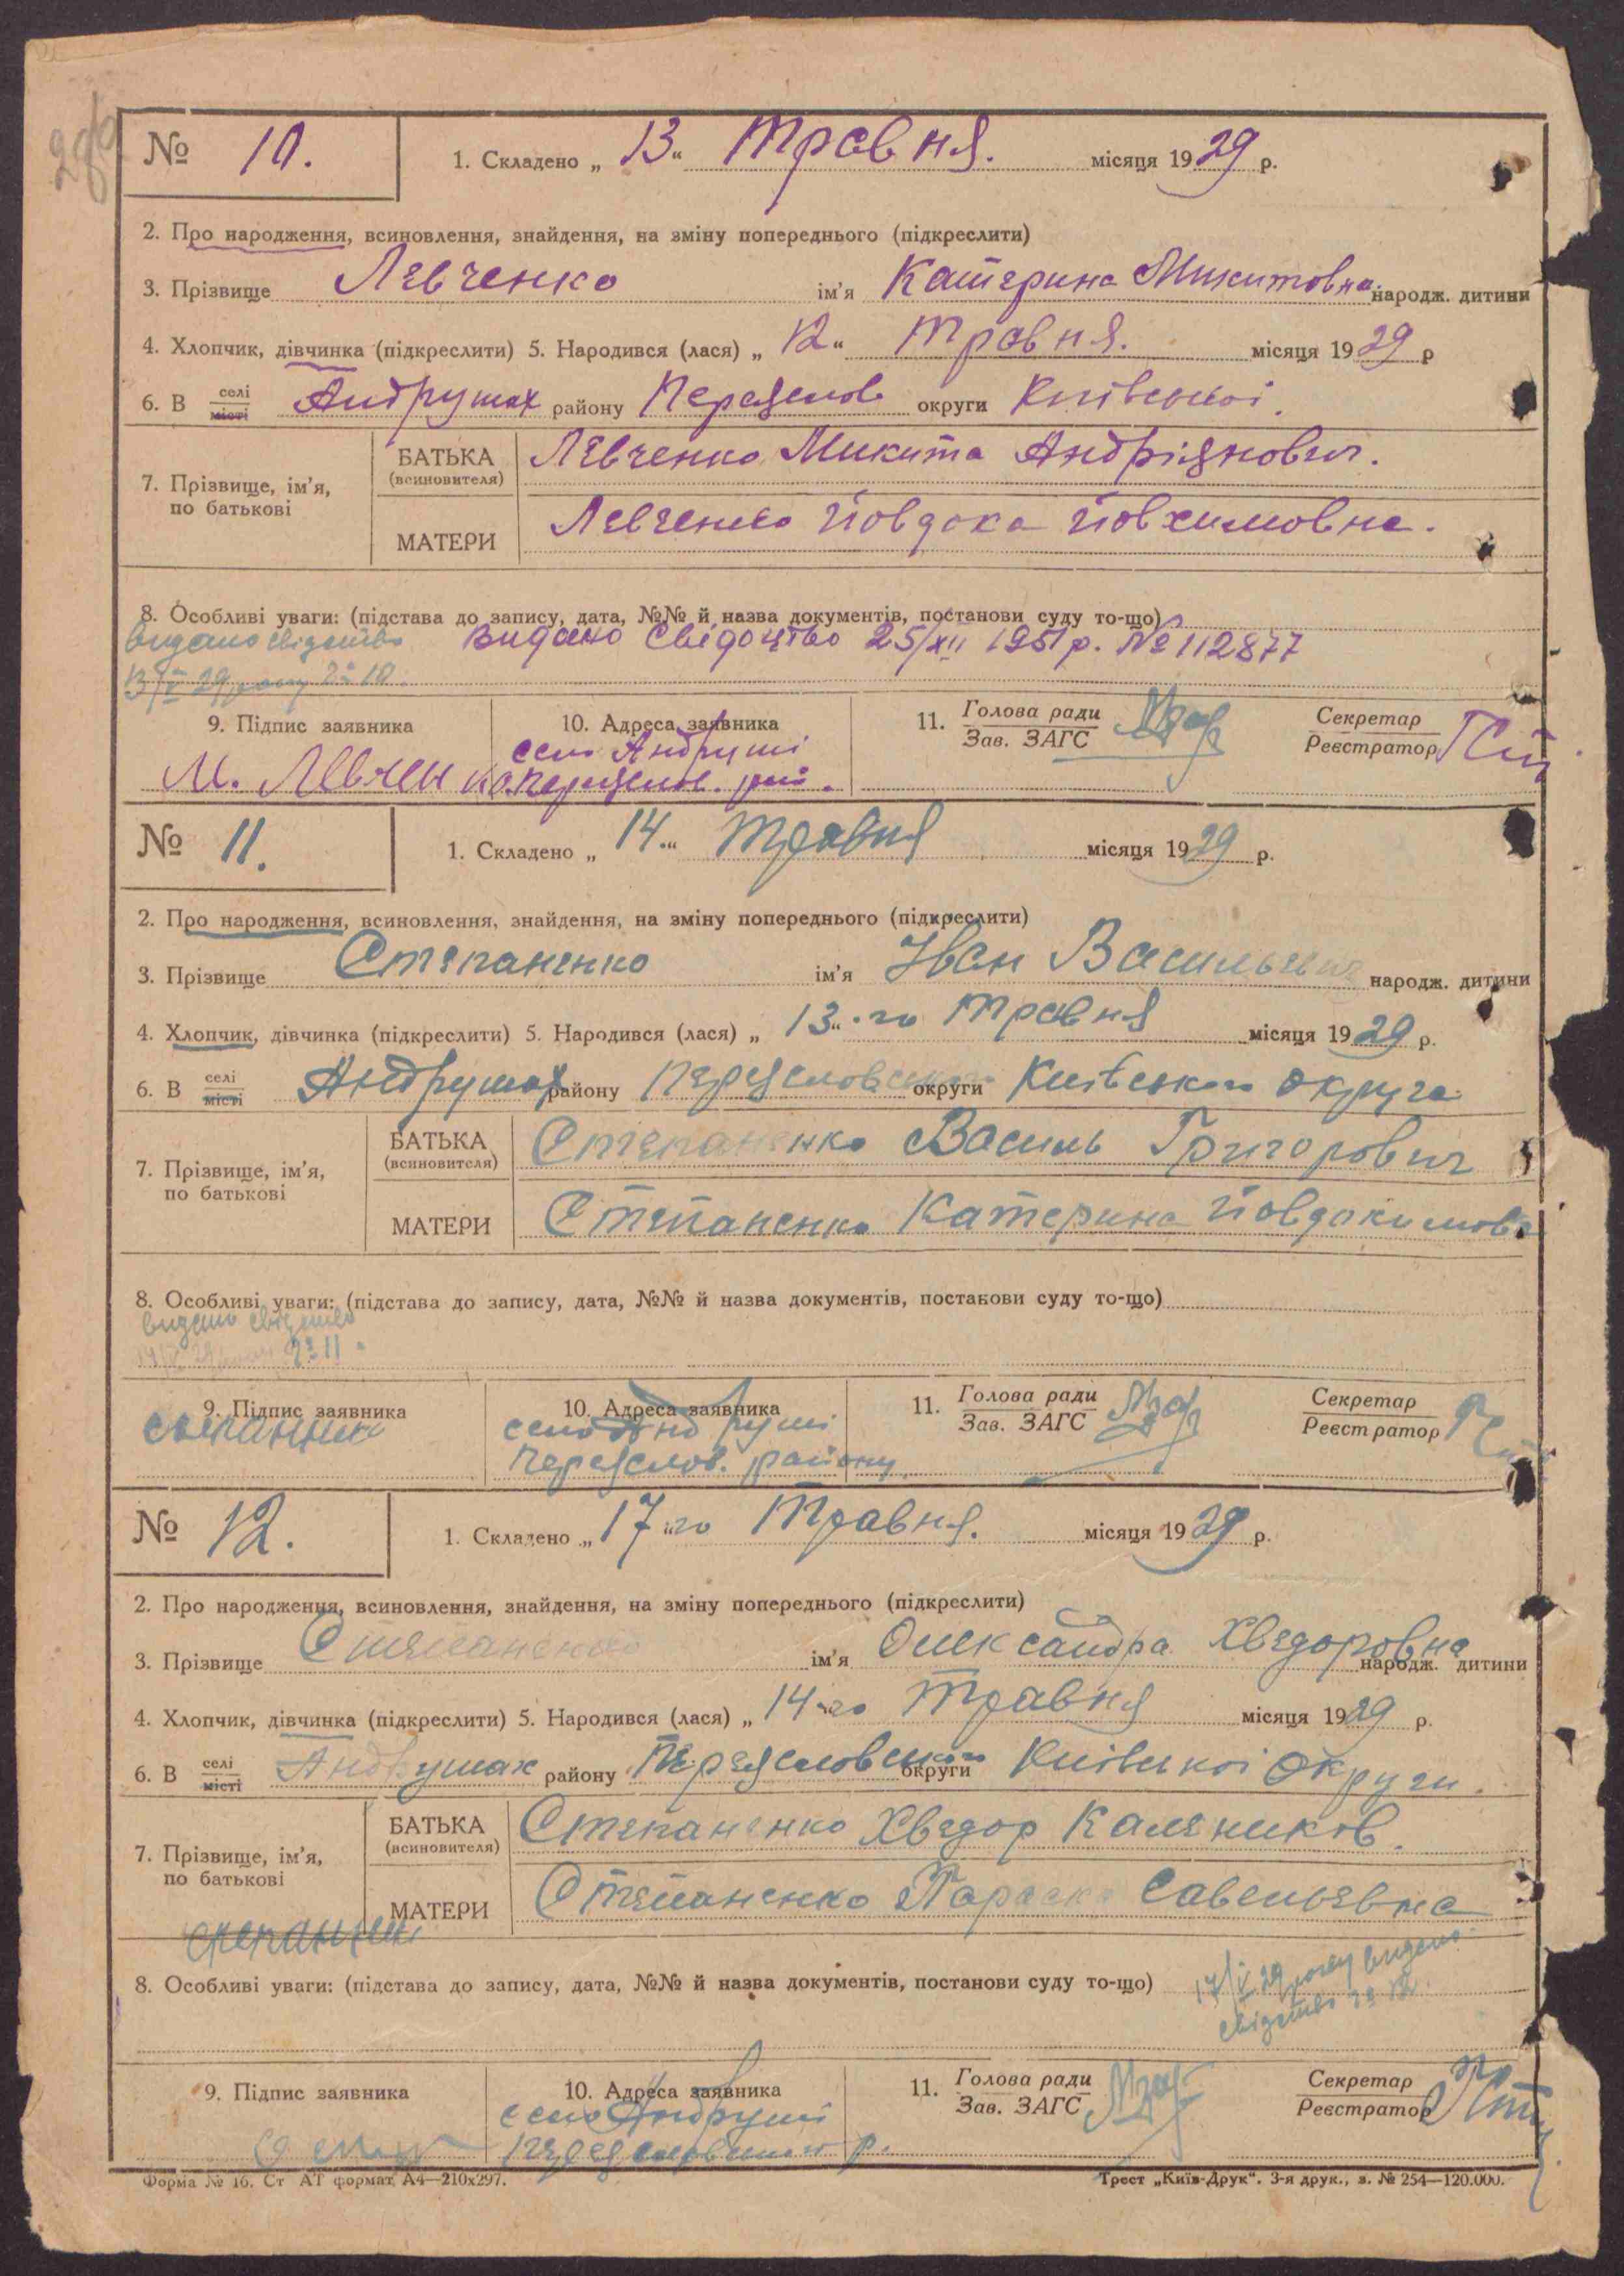 № 10.
1. Складено „ 13 “ Травня. місяця 1929 р.
2. Про народження, всиновлення, знайдення, на зміну попереднього (підкреслити)
3. Прізвище Левченко ім’я Катерина Микитовна народж. дитини
4. Хлопчик, дівчинка (підкреслити) 5. Народився (лася) „ 12 “ Травня. місяця 1929 р
6. В селі місті Андрушах району Переяслов округи Київськоі.
7. Прізвище, ім’я, по батькові
БАТЬКА (всиновителя) Левченко Микита Андріянович.
МАТЕРИ Левченко Йовдока Йовхимовна.
8. Особливі уваги: (підстава до запису, дата, №№ й назва документів, постанови суду то-що)
видано свідоцтво Видано Свідоцтво 25/XII 1951 р. № 112877
13/V 29 року за 10.
9. Підпис заявника 10. Адреса заявника 11. Голова ради Зав. ЗАГС Секретар Реєстратор
село Андруші
М. Левченко Переяслов. рай.
№ 11.
1. Складено „ 14 “ Травня місяця 1929 р.
2. Про народження, всиновлення, знайдення, на зміну попереднього (підкреслити)
3. Прізвище Степаненко ім’я Іван Васильевич народж. дитини
4. Хлопчик, дівчинка (підкреслити) 5. Народився (лася) „ 13 “ -го Травня місяця 1929 р.
6. В селі місті Андрушах району Переясловського округи Київського округа
7. Прізвище, ім’я, по батькові
БАТЬКА (всиновителя) Степаненко Василь Григорович
МАТЕРИ Степаненко Катерина Йовдокимовна
8. Особливі уваги: (підстава до запису, дата, №№ й назва документів, постанови суду то-що)
видано свідоцтво
14/V 29 року за 11
9. Підпис заявника 10. Адреса заявника 11. Голова ради Зав. ЗАГС Секретар Реєстратор
село Андруші
Переяслов. району
№ 12.
1. Складено „ 17 “ го Травня. місяця 1929 р.
2. Про народження, всиновлення, знайдення, на зміну попереднього (підкреслити)
3. Прізвище Степаненко ім’я Олександра Хведоровна народж. дитини
4. Хлопчик, дівчинка (підкреслити) 5. Народився (лася) „ 14-го Травня місяця 1929 р.
6. В селі місті Андрушах району Переясловського округи Київськоі Округи.
7. Прізвище, ім’я, по батькові
БАТЬКА (всиновителя) Степаненко Хведор Калеников.
МАТЕРИ Степаненко Параска Савельевна
8. Особливі уваги: (підстава до запису, дата, №№ й назва документів, постанови суду то-що)
17/V 29 року видано
свідотво за 12.
9. Підпис заявника 10. Адреса заявника 11. Голова ради Зав. ЗАГС Секретар Реєстратор
село Андруші
Переясловського р.
Форма № 16. Ст АТ формат А4—210х297.
Трест „Київ-Друк“. 3-я друк., з. № 254—120.000.